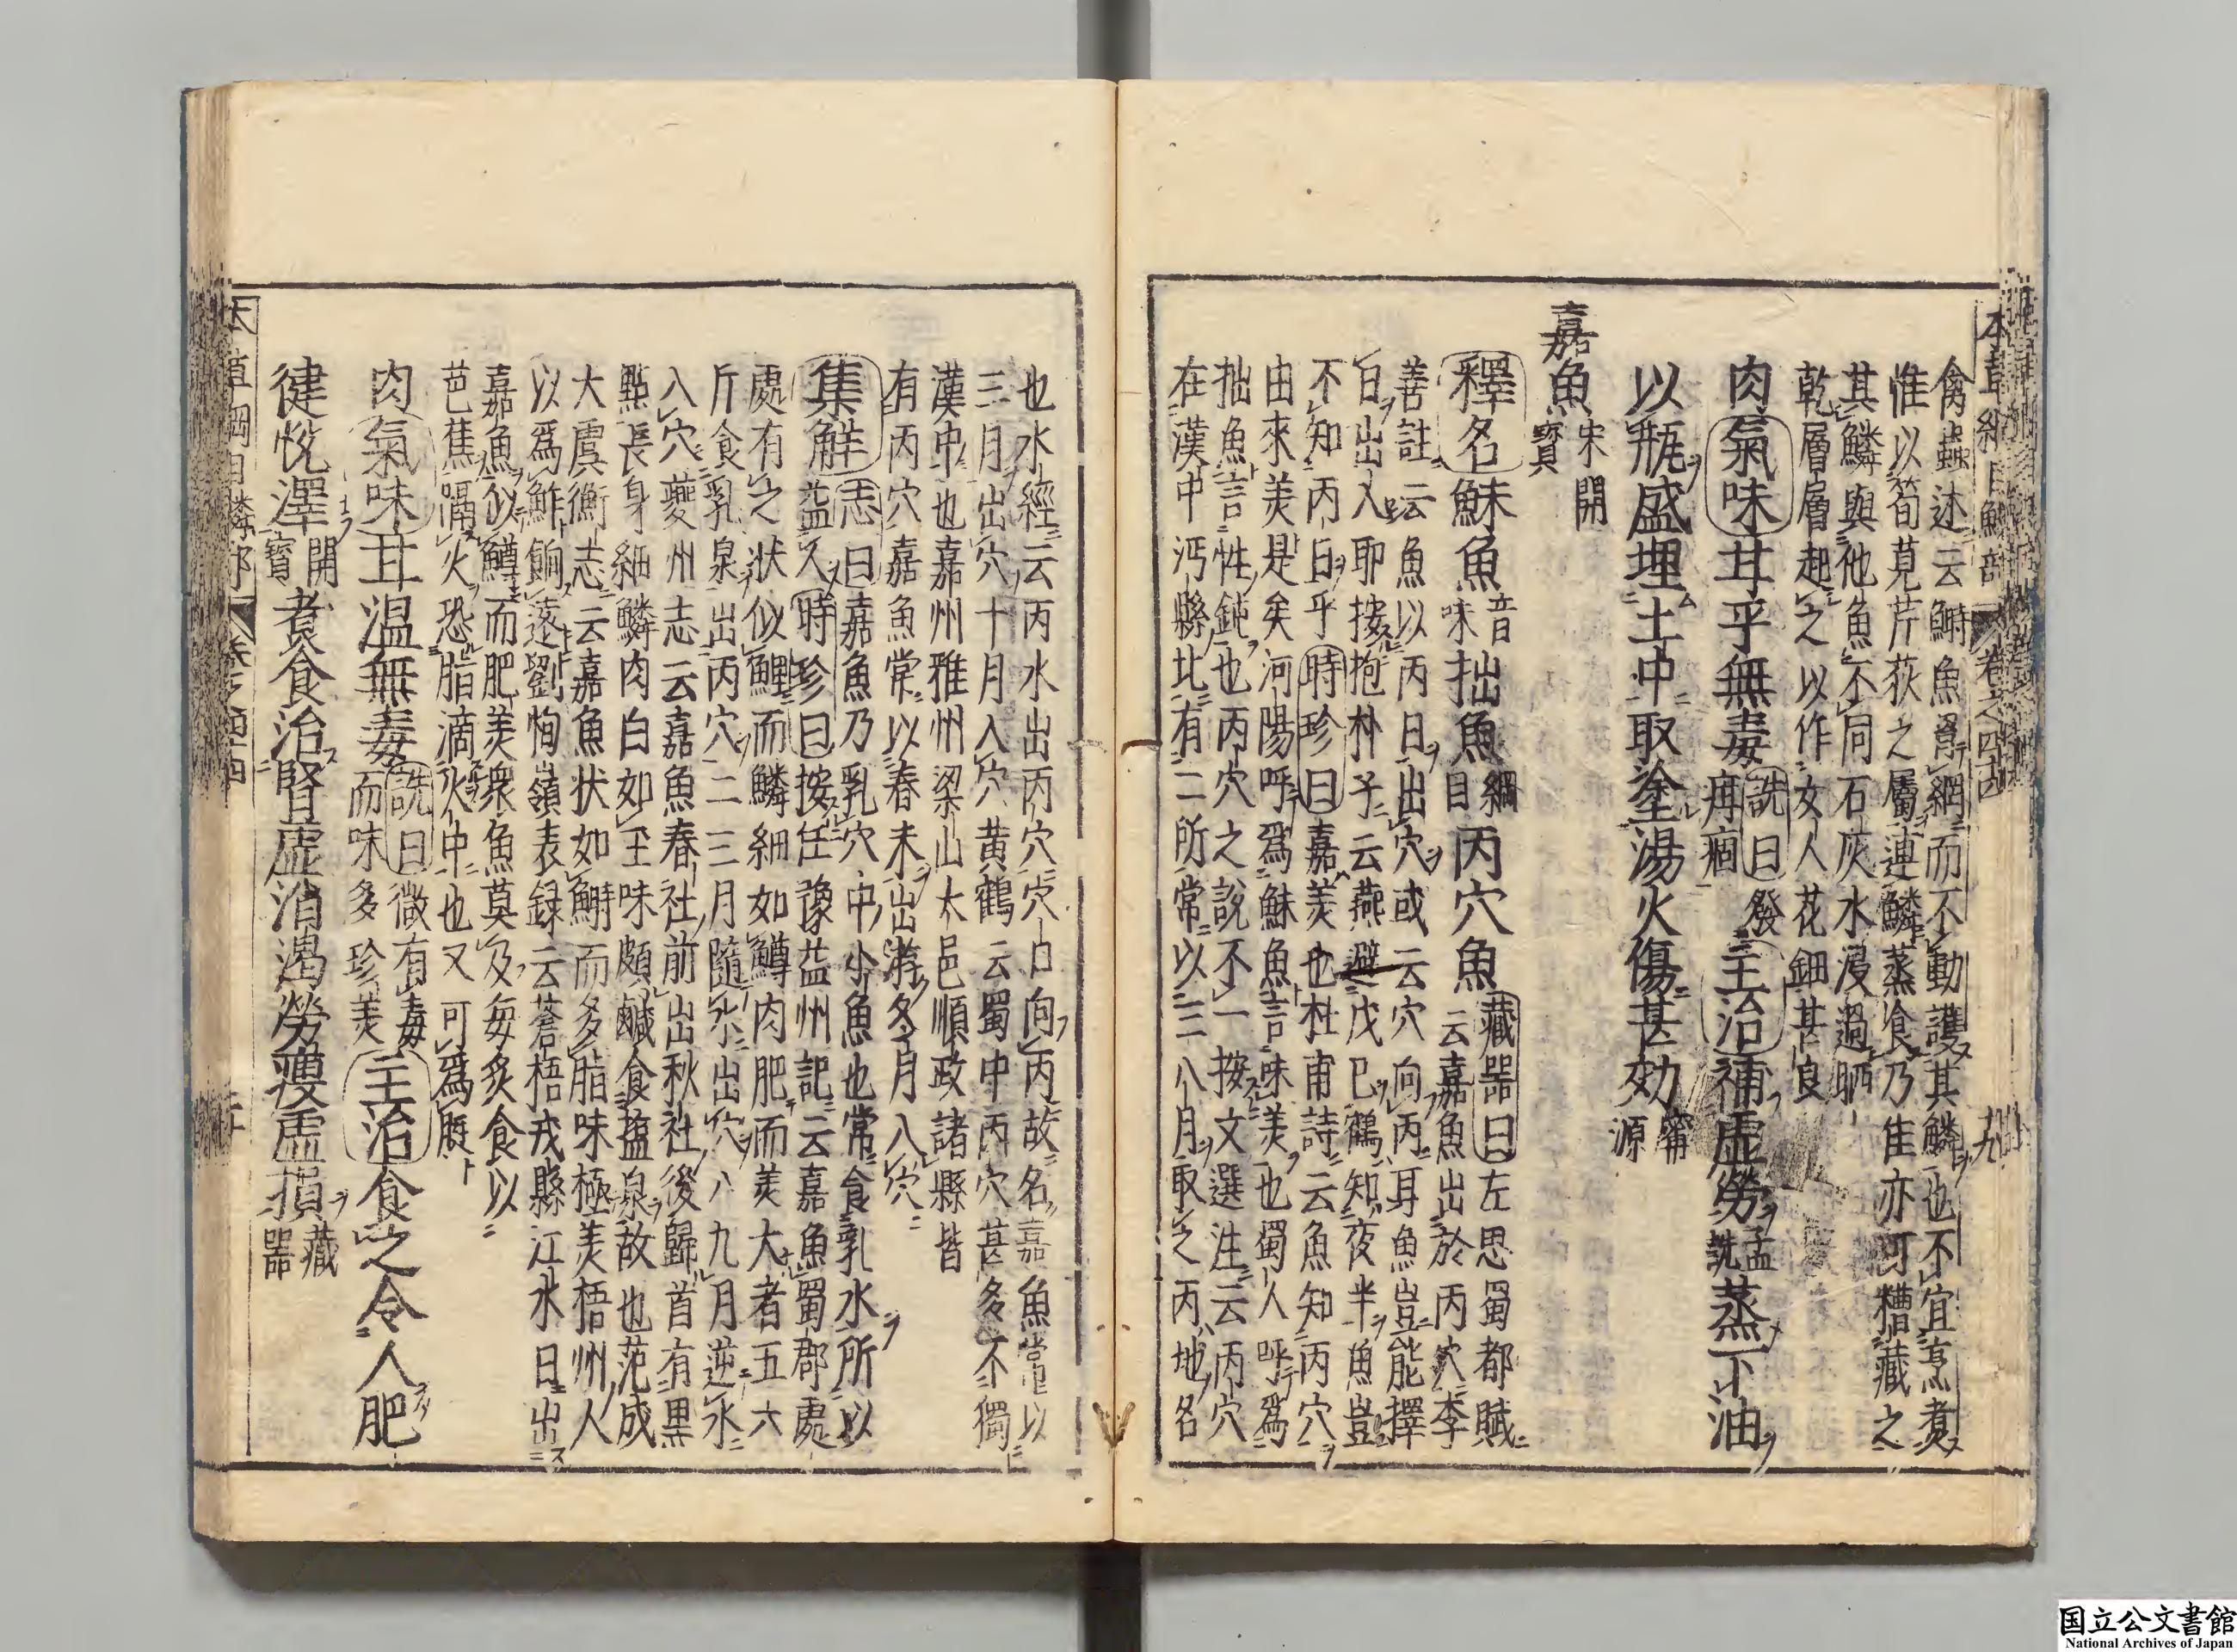 本草綱目鱗部 卷之四十四 九
禽蟲述云鰣魚罥網而不動護其鱗也不宜烹煮
惟以筍莧芹荻之屬連鱗蒸食乃佳亦可糟藏之
其鱗與他魚不同石灰水浸過晒
乾層層起之以作女人花鈿甚良
肉氣味甘平無毒詵曰發疳痼主治補虛勞孟詵蒸下油
以瓶盛埋土中取塗湯火傷甚効甯源
嘉魚宋開寶
釋名鮇魚音味拙魚綱目丙穴魚藏噐曰左思蜀都賦云嘉魚出於丙穴李
善註云魚以丙日出穴或云穴向丙耳魚豈能擇
日出入耶按抱朴子云燕避戊巳鶴知夜半魚豈
不知丙日乎時珍曰嘉美也杜甫詩云魚知丙穴
由來美是矣河陽呼爲鮇魚言味美也蜀人呼爲
拙魚言性鈍也丙穴之說不一按文選注云丙穴
在漢中沔縣北有二所常以三八月取之丙地名
也水經云丙水出丙穴穴口向丙故名嘉魚常以
三月出穴十月入穴黄鶴云蜀中丙穴甚多不獨
漢中也嘉州雅州梁山大邑順政諸縣皆
有丙穴嘉魚常以春末出游冬月入穴
集解志曰嘉魚乃乳穴中小魚也常食乳水所以
益人時珍曰按任豫益州記云嘉魚蜀郡處
處有之狀似鯉而鱗細如鱒肉肥而美大者五六
斤食乳泉出丙穴二三月隨水出穴八九月逆水
入穴夔州志云嘉魚春社前出秋社後歸首有黒
點長身細鱗肉白如玉味頗鹹食鹽泉故也范成
大虞衡志云嘉魚状如鰣而多脂味極美梧州人
以爲鮓餉遠劉恂嶺表録云蒼梧戎縣江水日出
嘉魚似鱒而肥美衆魚莫及每炙食以
芭蕉隔火恐脂滴火中也又可爲脠
肉氣味甘温無毒詵曰微有毒而味多珍美主治食之令人肥
健悅澤開寶煮食治腎虛消渴勞瘦虛損藏噐
本草綱目鱗部 卷之四十四
国立公文書館
National Archives of Japan